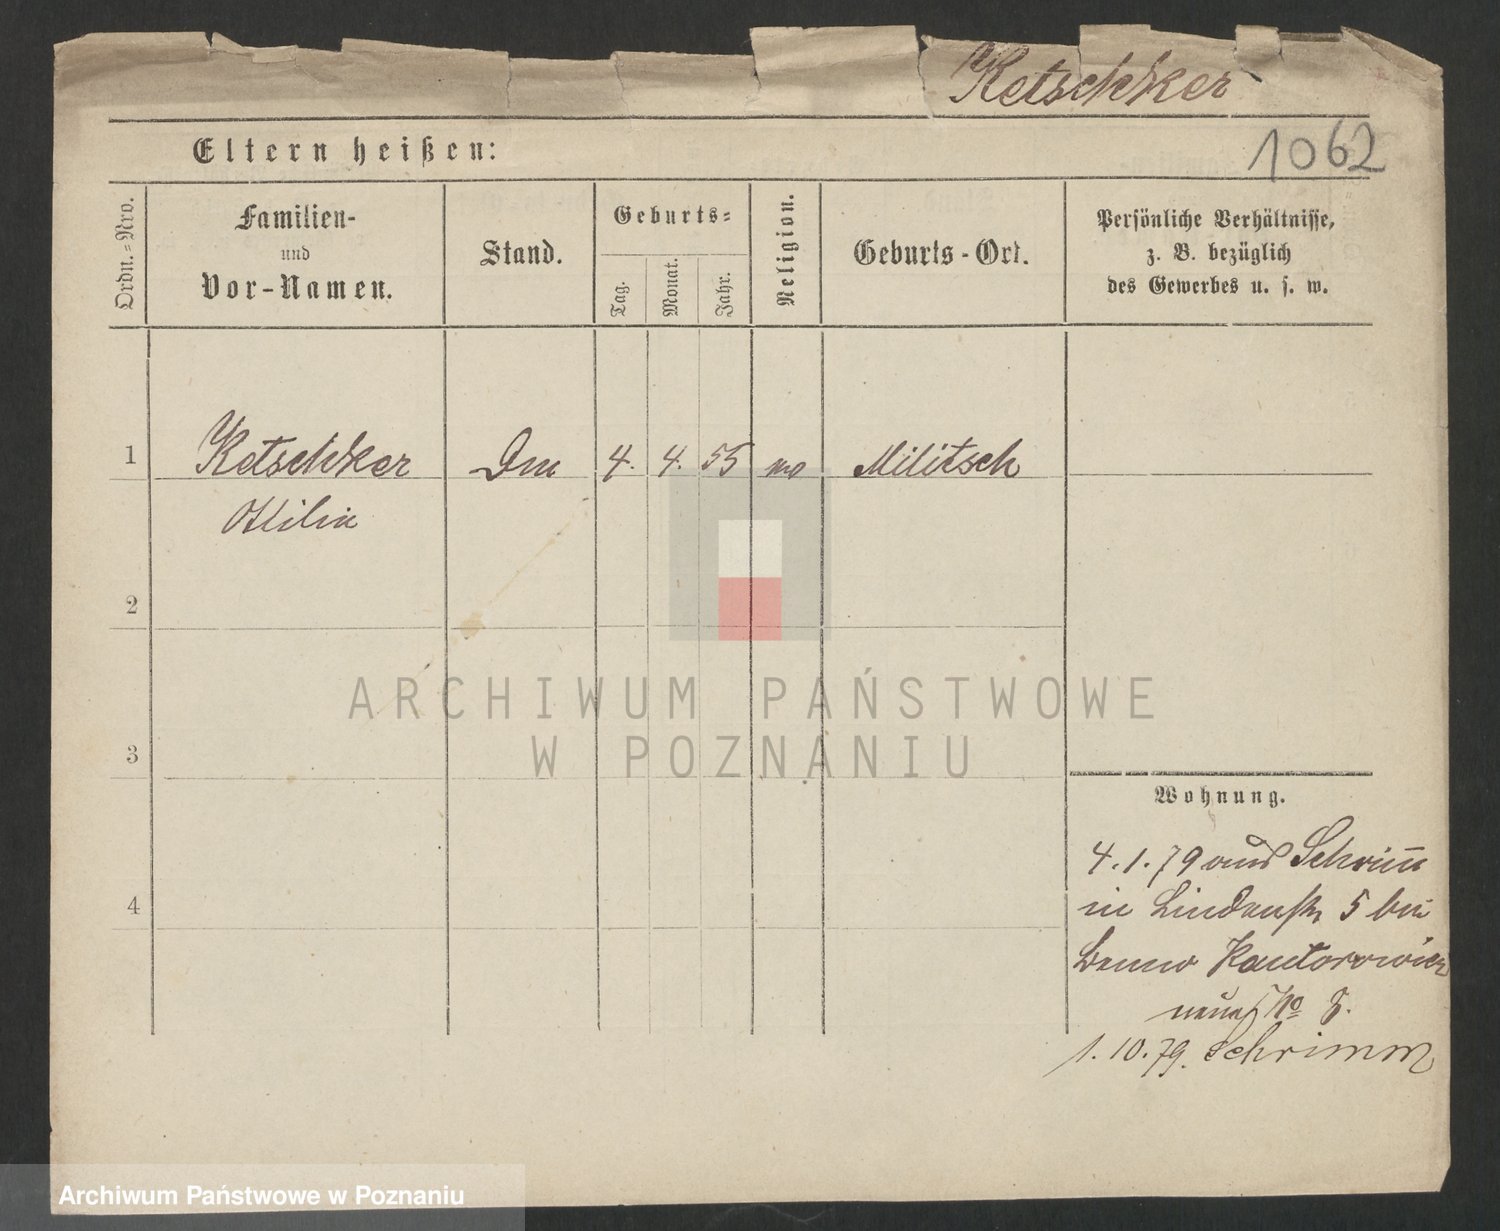 Ketschker
1062
Eltern heißen:
Ordn.=Nro.
Familien-
und
Vor-Namen.
Stand.
Geburts=
Tag.
Monat.
Jahr.
Religion.
Geburts-Ort.
Persönliche Verhältnisse,
z. B. bezüglich
des Gewerbes u. s. w.
1
Ketschker
4. 4. 55
Militsch
Ottilie
2
3
4
ARCHIWUM PAŃSTWOWE
W POZNANIU
Wohnung.
4.1.79 aus Schrim̅
in Lindenstr 5 bei
Benno Kantorowicz
neue No 8.
1.10.79. Schrimm
Archiwum Państwowe w Poznaniu